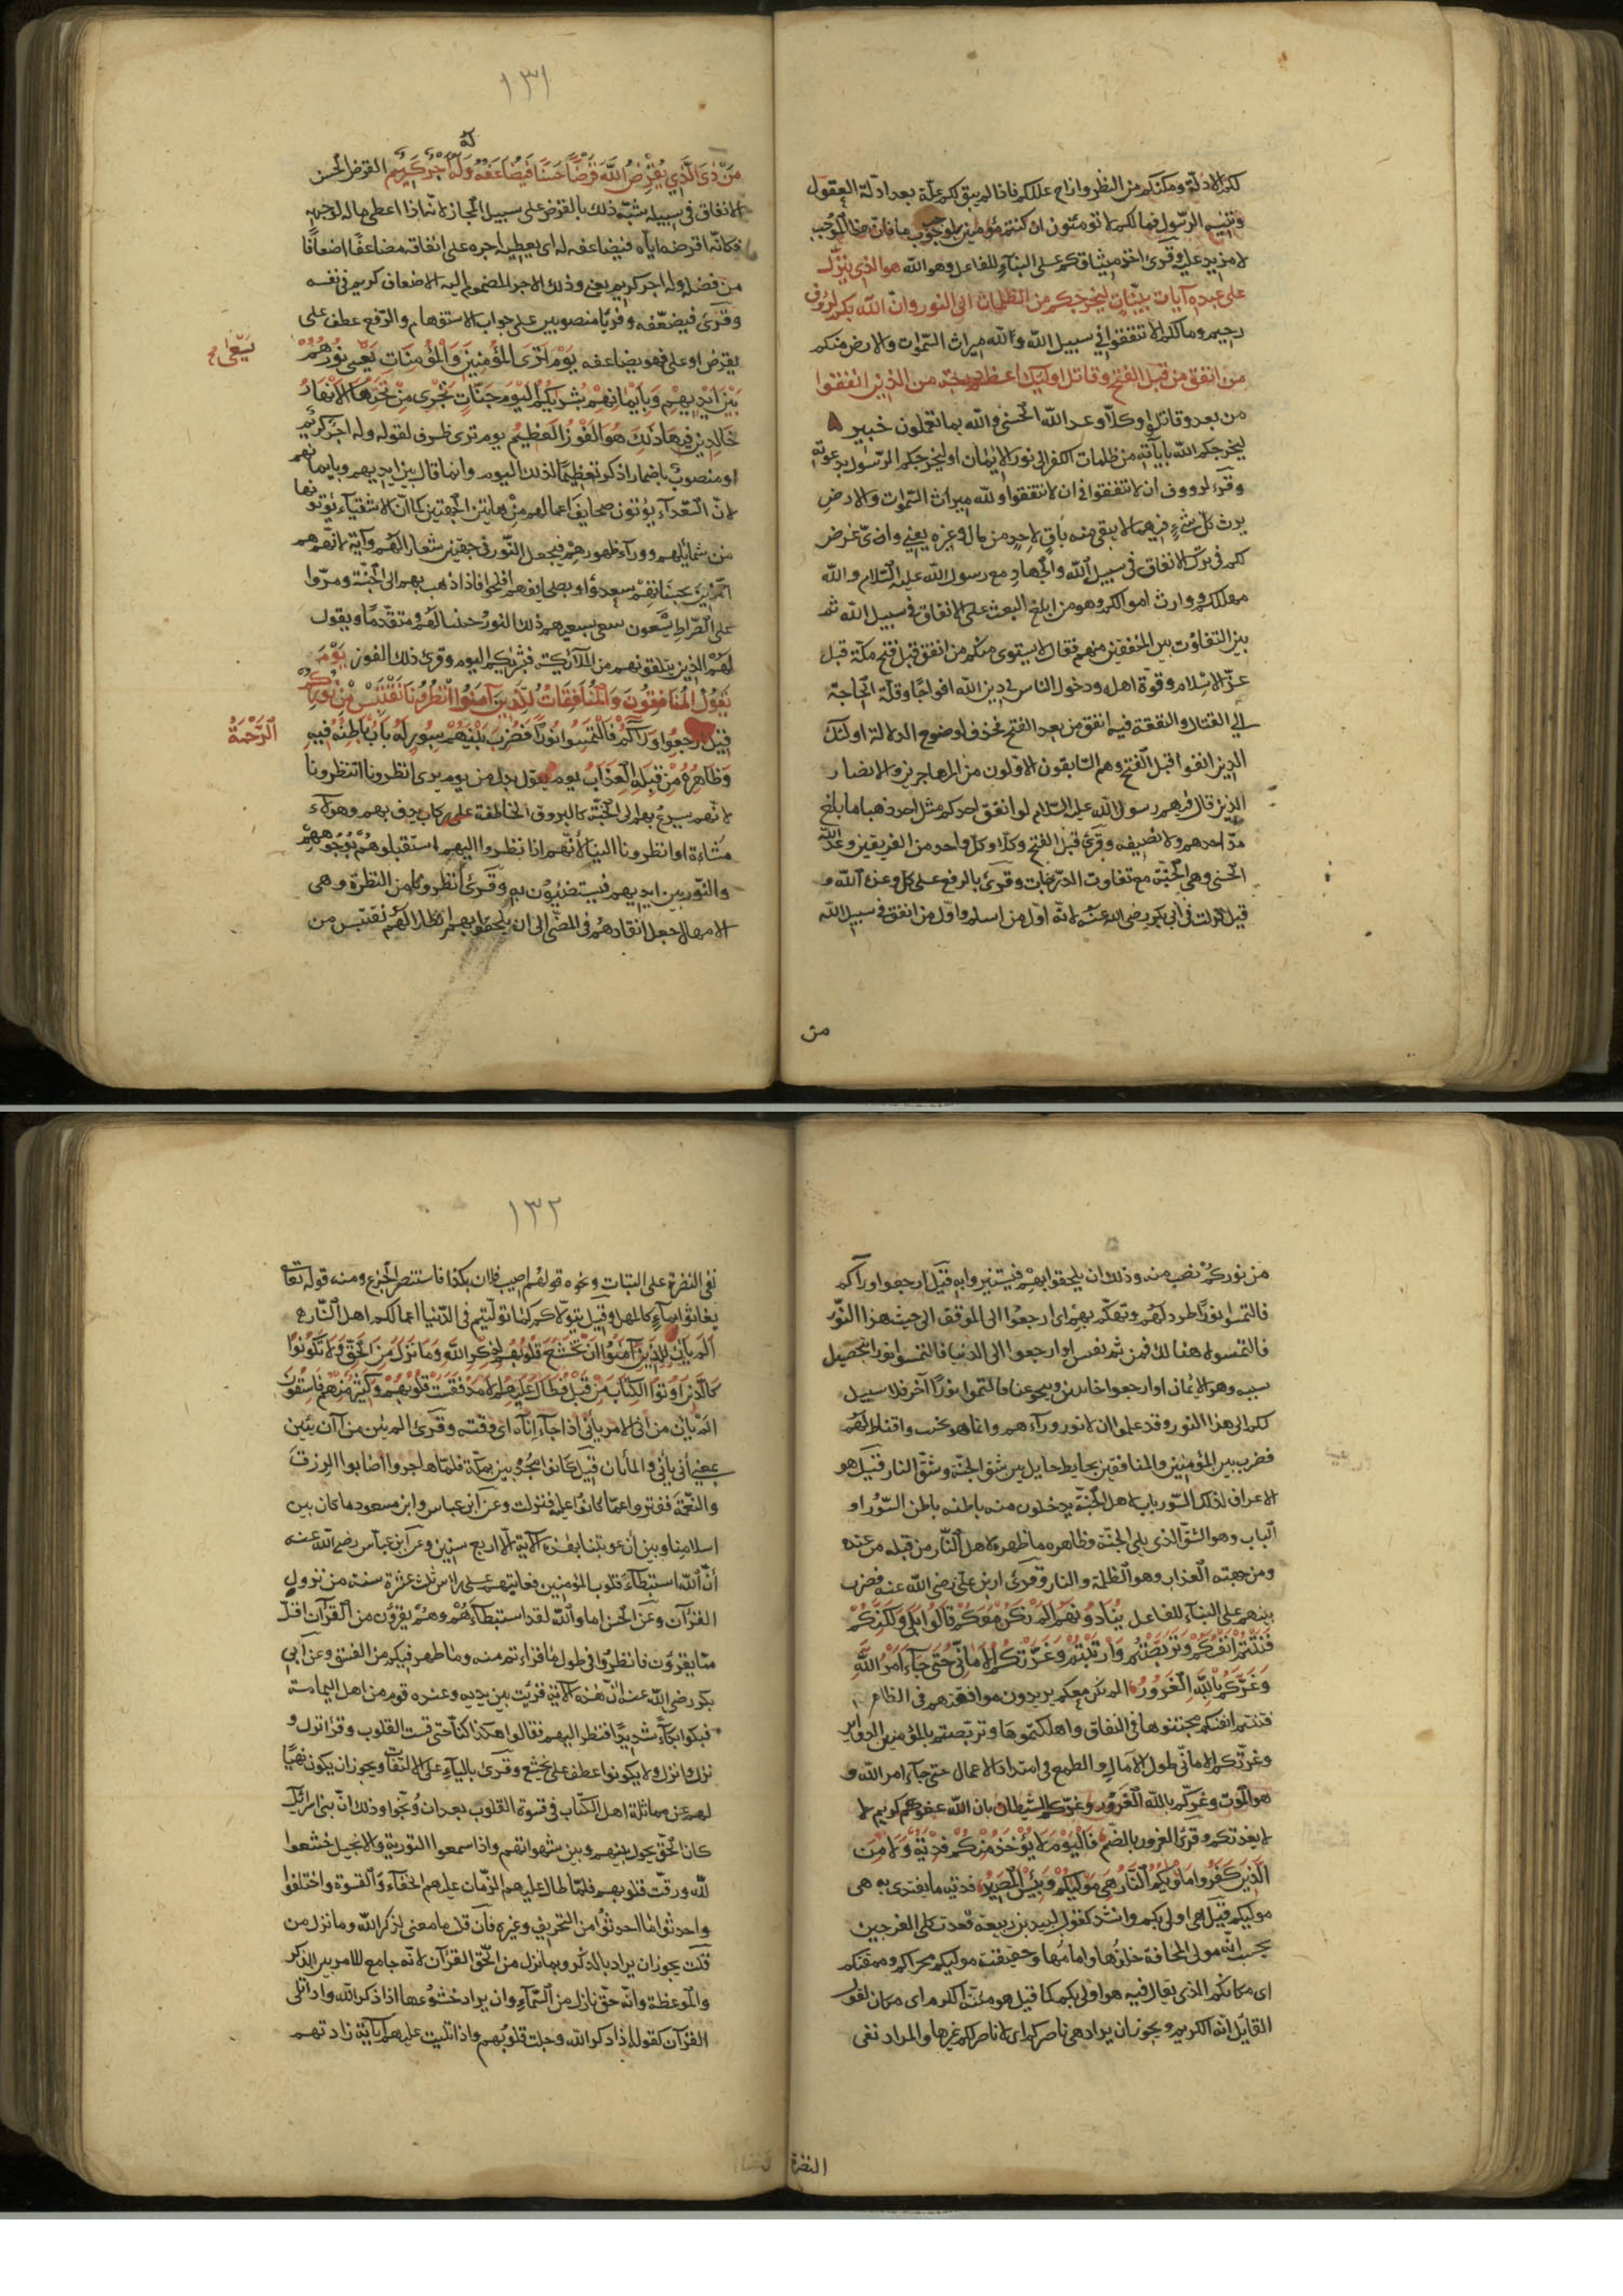 لكم الادلة ومكنكم من النظر وازاح عللكم فاذا لم يبق لكم علة بعد ادلة العقول
وتنبيه الرسول فما لكم لا تؤمنون ان كنتم مؤمنين لموجب ما فان هذا الموجب
لا مزيد عليه وقرئ اخذ ميثاقكم على البناء للفاعل وهو الله هو الذي ينزل
على عبده آيات بينات ليخرجكم من الظلمات الى النور وان الله بكم لرؤف
رحيم وما لكم الا تنفقوا في سبيل الله ولله ميراث السموات والارض لا يستوي منكم
من انفق من قبل الفتح وقاتل اوليك اعظم درجة من الذين انفقوا
من بعد وقاتلوا وكلا وعد الله الحسنى والله بما تعملون خبير
ليخرجكم الله بآياته من ظلمات الكفر الى نور الايمان او ليخرجكم الرسول بدعوته
وقرء لرووف ان لا تنفقوا في ان لا تنفقوا ولله ميراث السموات والارض
يرث كل شيء فيهما لا يبقى منه باق لاحد من مال وغيره يعني واي غرض
لكم في ترك الانفاق في سبيل الله والجهاد مع رسول الله عليه السلام والله
مهلككم ووارث اموالكم وهو من ابلغ البعث على الانفاق في سبيل الله ثم
بين التفاوت بين المنفقين منهم فقال لا يستوي منكم من انفق قبل فتح مكة قبل
عز الاسلام وقوة اهله ودخول الناس في دين الله افواجا وقلة الحاجة
الى القتال والنفقة فيه ومن انفق من بعد الفتح فحذف لوضوح الدلالة اولئك
الذين انفقوا قبل الفتح وهم السابقون الاولون من المهاجرين والانصار
الذين قال فيهم رسول الله عليه السلام لو انفق احدكم مثل احد ذهبا ما بلغ
مد احدهم ولا نصيفه وقرئ قبل الفتح وكلا وكل واحد من الفريقين وعد الله
الحسنى وهي الجنة مع تفاوت الدرجات وقرئ بالرفع على وكل وعده الله و
قيل نزلت في ابي بكر رضي الله عنه لانه اول من اسلم واول من انفق في سبيل الله
من
١٣١
له
من ذى الذي يقرض الله قرضا حسنا فيضاعفه وله اجر كريم القرض الحسن
الانفاق في سبيله شبه ذلك بالقرض على سبيل المجاز لانه اذا اعطى ماله لوجهه
فكانه اقرضه اياه فيضاعفه له اى يعطيه اجره على انفاقه مضاعفا اضعافا
من فضله وله اجر كريم يعني وذلك الاجر المضموم اليه الاضعاف كريم في نفسه
وقرئ فيضعفه وقريا منصوبين على جواب الاستفهام والرفع عطف على
يقرض او على فهو يضاعفه يوم ترى المؤمنين والمؤمنات يسعى نورهم
يسعى
بين ايديهم وبايمانهم بشريكم اليوم جنات تجرى من تحتها الانهار
خالدين فيها ذلك هو الفوز العظيم يوم ترى ظرف لقوله وله اجر كريم
او منصوب باضمار اذكر تعظيما لذلك اليوم وانما قال بين ايديهم وبايمانهم
لان السعداء يؤتون صحايف اعمالهم من هاتين الجهتين كما ان الاشقياء يؤتونها
من شمائلهم ووراء ظهورهم فيجعل النور في جهتين شعارا لهم وآية لانهم هم
الذين بحسناتهم سعدوا وبصحايفهم افلحوا فاذا ذهب بهم الى الجنة ومروا
على الصراط يسعون سعى بسعيهم ذلك النور جنبا لهم ومتقدما ويقول
لهم الذين يتلقونهم من الملائكة بشريكم اليوم وقرئ ذلك الفوز يوم
يقول المنافقون والمنافقات للذين آمنوا انظرونا نقتبس من نوركم
قيل ارجعوا وراءكم فالتمسوا نورا فضرب بينهم بسور له باب باطنه فيه
الرحمة
وظاهره من قبله العذاب يوم يقول بدل من يوم يرى انظرونا انتظرونا
لانهم يسرع بهم الى الجنة كالبروق الخاطفة على ركاب يزف بهم وهؤلاء
مشاة او انظرونا الينا لانهم اذا نظروا اليهم استقبلوهم بوجوههم
والنور بين ايديهم فيستضيؤن به وقرئ انظرونا من النظرة وهي
الامهال جعل اتئادهم في المضى الى ان يلحقوا بهم انظارا لهم نقتبس من
من نوركم نصب منه وذلك ان يلحقوا بهم فيستنيروا به قيل ارجعوا وراءكم
فالتمسوا نورا طرد لهم وتهكم بهم اى ارجعوا الى الموقف الى حيث هذا النور
فالتمسوه هنالك فمن ثم نقتبس او ارجعوا الى الدنيا فالتمسوا نورا بتحصيل
سببه وهو الايمان او ارجعوا خائبين وتنحوا عنا فالتمسوا نورا آخر فلا سبيل
لكم الى هذا النور وقد علموا ان لا نور وراءهم وانما هو تخييب واقناط لهم
فضرب بين المؤمنين والمنافقين بحايط حايل بين شق الجنة وشق النار قيل هو
الاعراف لذلك السور باب لاهل الجنة يدخلون منه باطنه باطن السور او
الباب وهو الشق الذى يلى الجنة وظاهره ما ظهر لاهل النار من قبله من عنده
ومن جهته العذاب وهو الظلمة والنار وقرئ زيد بن على رضى الله عنه فضرب
بينهم على البناء للفاعل ينادونهم الم نكن معكم قالوا بلى ولكنكم
فتنتم انفسكم وتربصتم وارتبتم وغرتكم الامانى حتى جاء امر الله
وغركم بالله الغرور الم نكن معكم يريدون موافقتهم فى الظاهر
فتنتم انفسكم محنتموها فى النفاق واهلكتموها وتربصتم بالمؤمنين الدواير
وغرتكم الامانى طول الآمال والطمع فى امتداد الاعمار حتى جاء امر الله و
هو الموت وغركم بالله الغرور وغركم الشيطان بان الله عفو كريم لا
لا يعذبكم وقرئ الغرور بالضم فاليوم لا يؤخذ منكم فدية ولا من
الذين كفروا ماويكم النار هى موليكم وبئس المصير فدية ما يفتدى به هى
موليكم قيل هى اولى بكم وانشد كقول لبيد بن ربيعة فغدت كلى الفرجين
تحسب انه مولى المخافة خلفها وامامها وحقيقته موليكم محراكم ومقمنكم
اى مكانكم الذى يقال فيه هو اولى بكم كما قيل هو مئنة الكرم اى مكان لقول
القايل انه الكريم ويجوز ان يراد هى ناصركم اى لا ناصر لكم غيرها والمراد نفى
النضرة
١٣٢
نفى النضرة على البتات ونحوه قولهم اصيب فلان بكذا فاستنصر الجزع ومنه قوله تعالى
يغاثوا بماء كالمهل وقيل يتولاكم كما توليتم فى الدنيا اعمال اهل النار
الم يان للذين آمنوا ان تخشع قلوبهم لذكر الله وما نزل من الحق ولا تكونوا
كالذين اوتوا الكتاب من قبل فطال عليهم الامد فقست قلوبهم وكثير منهم فاسقون
الم يان من انى الامر يانى اذا جاء اناه اى وقته وقرئ الم يئن من آن يئين
بمعنى أنى يأنى والما يان قيل كانوا مجدبين بمكة فلما هاجروا اصابوا الرزق
والنعمة ففتروا عما كانوا عليه فنزلت وعن ابن عباس وابن مسعود ما كان بين
اسلامنا وبين أن عوتبنا بهذه الآية الا اربع سنين وعن ابن عباس رضى الله عنه
أن الله استبطأ قلوب المؤمنين فعاتبهم على راس ثلث عشرة سنة من نزول
القرآن وعن الحسن اما والله لقد استبطأهم وهم يقرؤن من القرآن اقل
مما يقرؤن فانظروا فى طول ما قراتم منه وما ظهر فيكم من الفسق وعن ابى
بكر رضى الله عنه ان هذه الآية قرئت بين يديه وعنده قوم من اهل اليمامة
فبكوا بكاء شديدا فنظر اليهم فقال هكذا كنا حتى قست القلوب وقرئ نزل و
نزل وانزل ولا يكونوا عطف على تخشع وقرئ بالياء على الالتفات ويجوز ان يكون نهيا
لهم عن مماثلة اهل الكتاب فى قسوة القلوب بعد ان وبخوا وذلك ان بنى اسرائيل
كان الحق يحول بينهم وبين شهواتهم واذا سمعوا التورية والانجيل خشعوا
لله ورقت قلوبهم فلما طال عليهم الزمان غلبهم الجفاء والقسوة واختلفوا
واحدثوا ما احدثوا من التحريف وغيره فان قلت ما معنى لذكر الله وما نزل من
قلت يجوز ان يراد بالذكر وبما نزل من الحق القرآن لانه جامع للامرين الذكر
والموعظة وانه حق نازل من السماء وان يراد خشوعها اذا ذكر الله واذا تلى
القرآن كقوله اذا ذكر الله وجلت قلوبهم واذا تليت عليهم آياته زادتهم